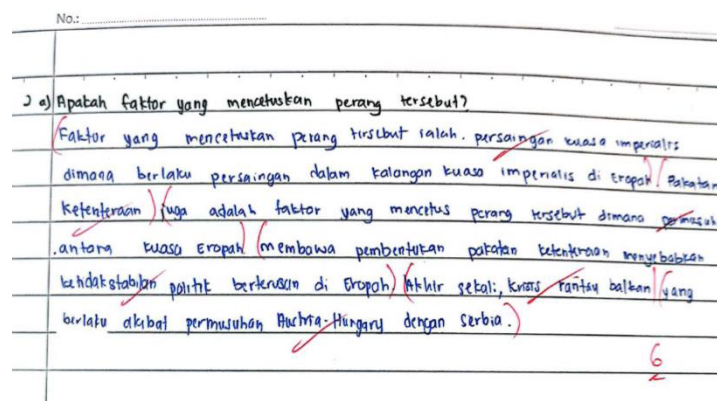 No.:
2 a) Apakah faktor yang mencetuskan perang tersebut?
Faktor yang mencetuskan perang tersebut ialah. persaingan kuasa imperialis
dimana berlaku persaingan dalam kalangan kuasa imperialis di Eropah. Pakatan
Ketenteraan juga adalah faktor yang mencetus perang tersebut dimana permusuh
antara kuasa Eropah membawa pembentukan pakatan ketenteraan menyebabkan
ketidakstabilan politik berterusan di Eropah. Akhir sekali, krisis rantau balkan yang
berlaku akibat permusuhan Austria-Hungary dengan Serbia.
6